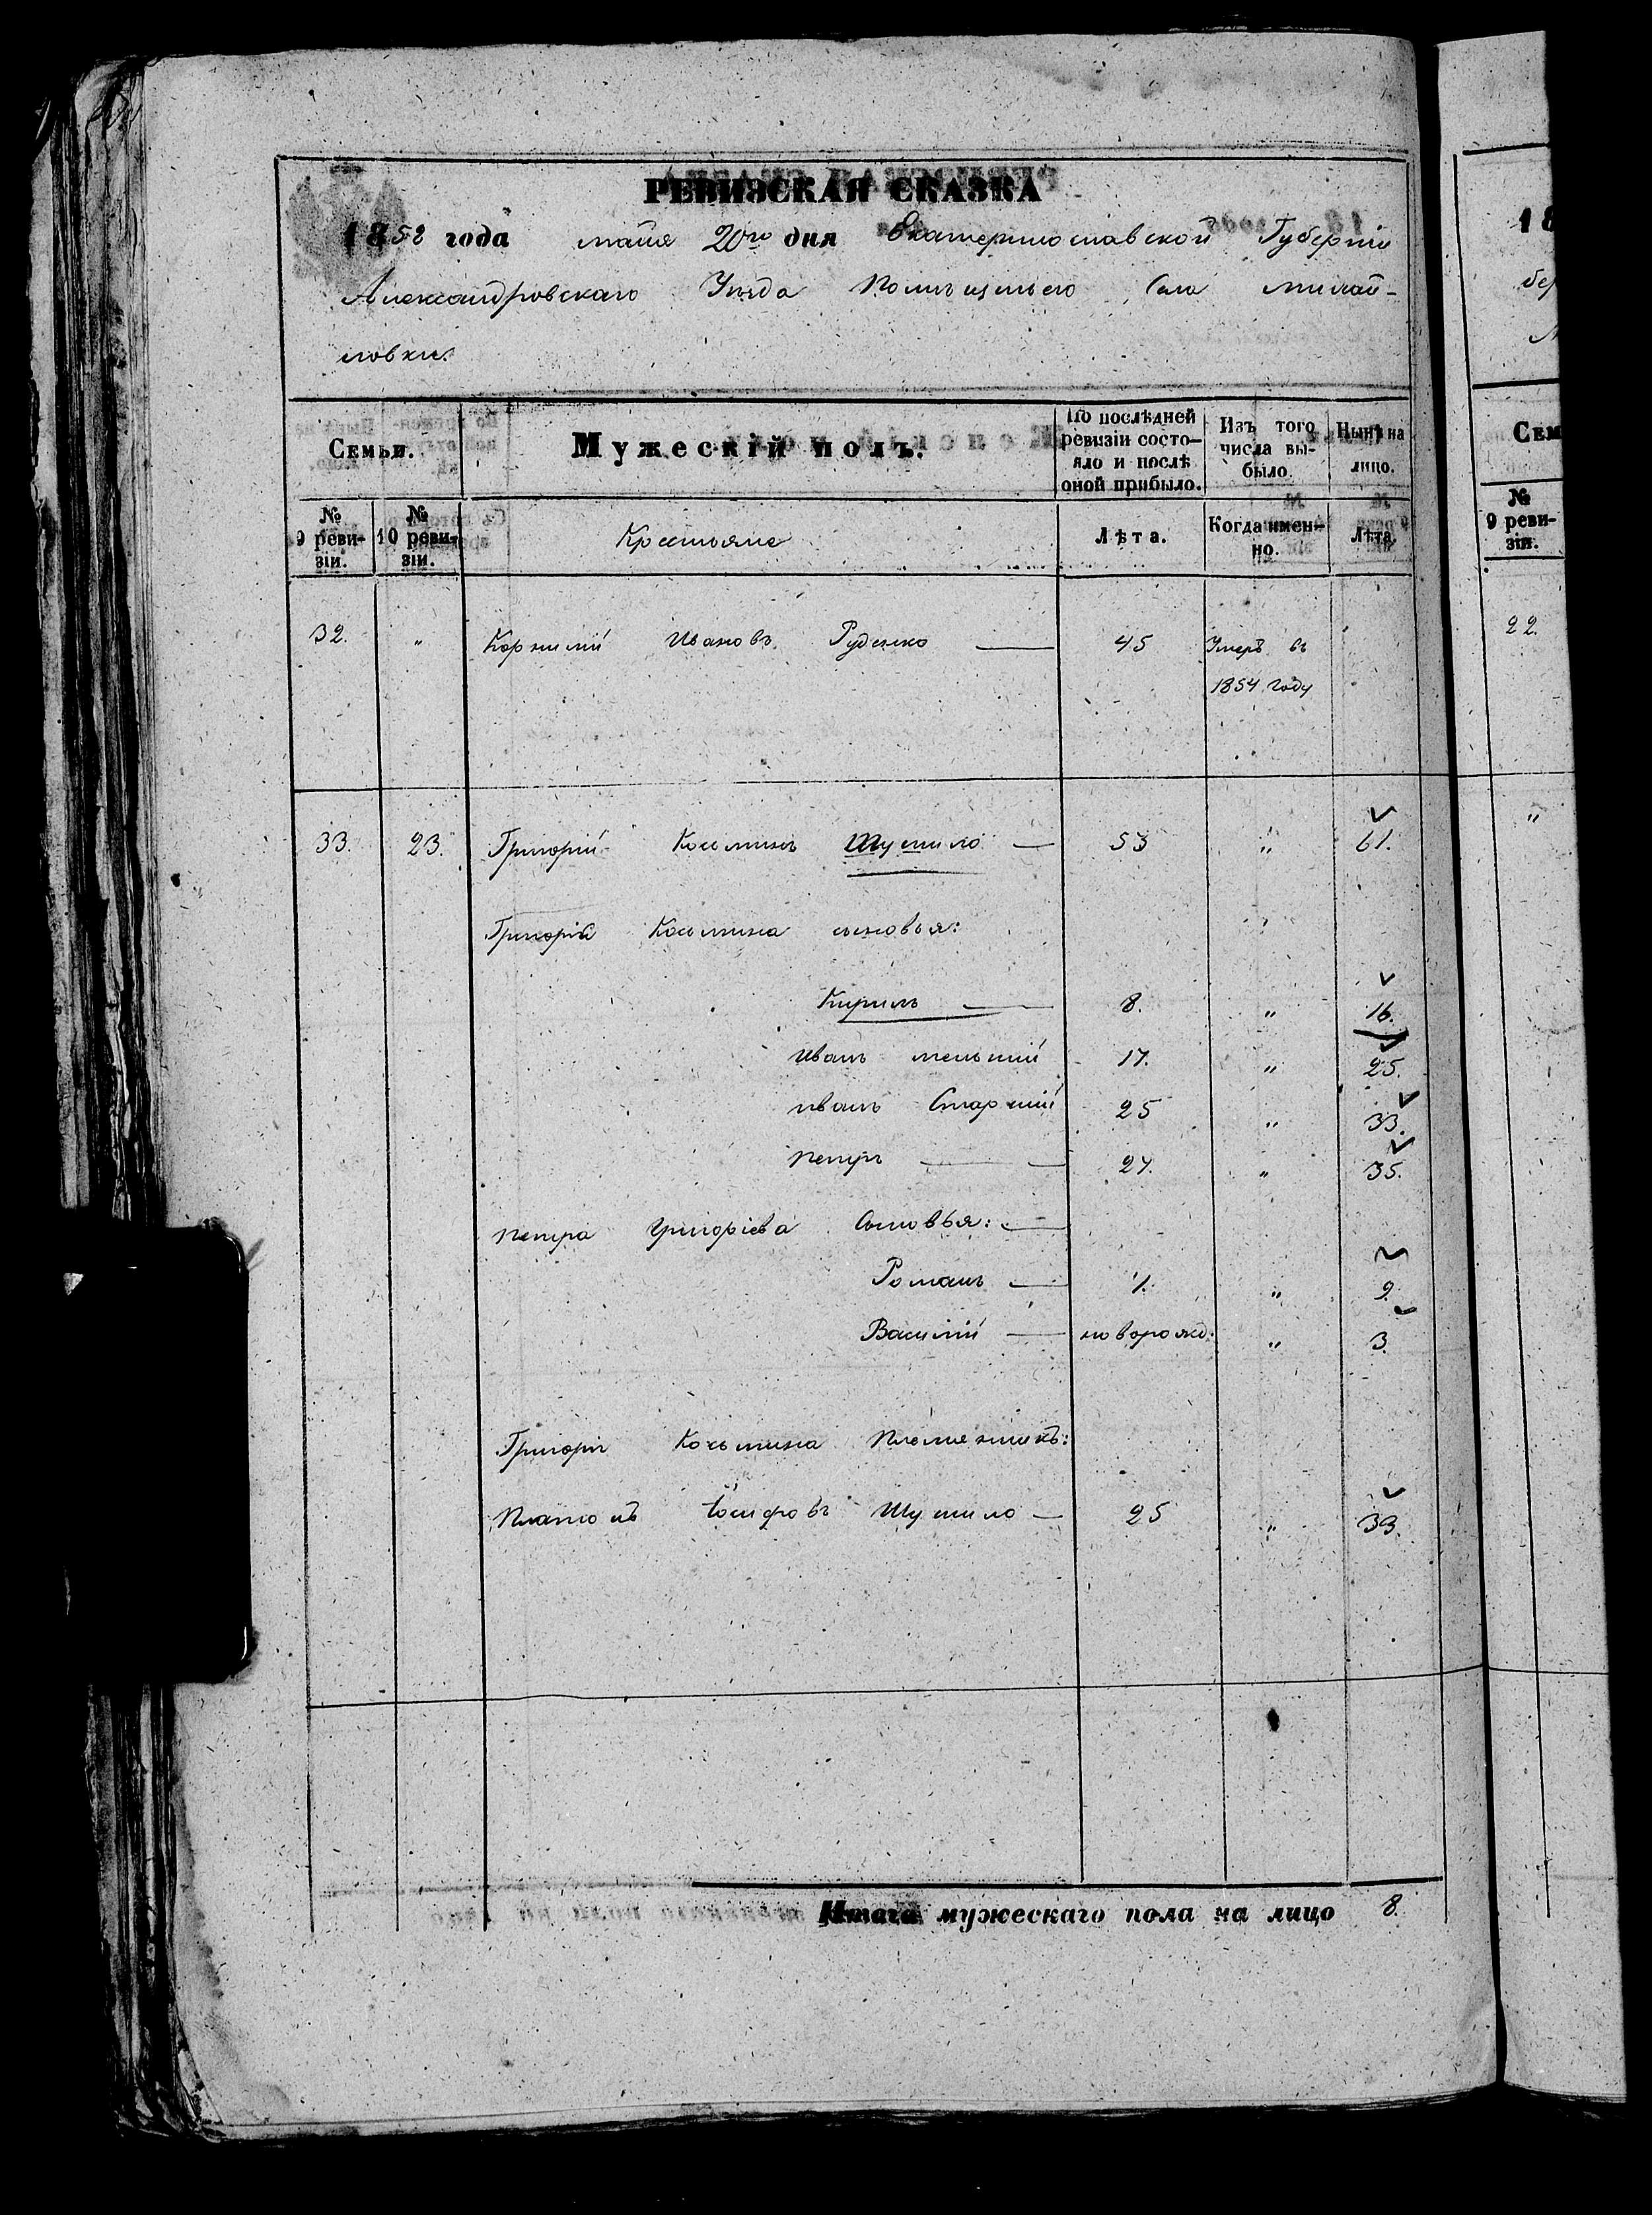 РЕВИЗСКАЯ СКАЗКА
1858 года маия 20го дня Екатеринославской Губерніи
Александровскаго Уѣзда Помѣщичьего Села Михай-
ловки.
Семьи. Мужескій полъ. По послѣдней ревизіи состо-яло и послѣ оной прибыло. Изъ того числа вы-было. Нынѣ на лицо.
№ 9 реви-зіи. № 10 реви-зіи. Крестьяне Лѣта. Когда имен-но. Лѣта.
32. " Корнилій Ивановъ Руденко — 45 Умеръ въ
1854 году
33. 23. Григорій Косьминъ Шушило — 53 " 61.
Григорія Косьмина сыновья:
Кирилъ — 8. " 16.
Иванъ меньшій 17. " 25.
Иванъ Старшій 25 " 33.
Петръ — 27. " 35.
Петра Григоріева Сыновья: —
Романъ — 1. " 9.
Василій — новорожд. " 3.
Григорія Косьмина Племянникъ:
Платонъ Іосифовъ Шушило — 25 " 33.
Итого мужескаго пола на лицо 8.
18
бер
Сем
№
9 реви-
зіи.
22.
"